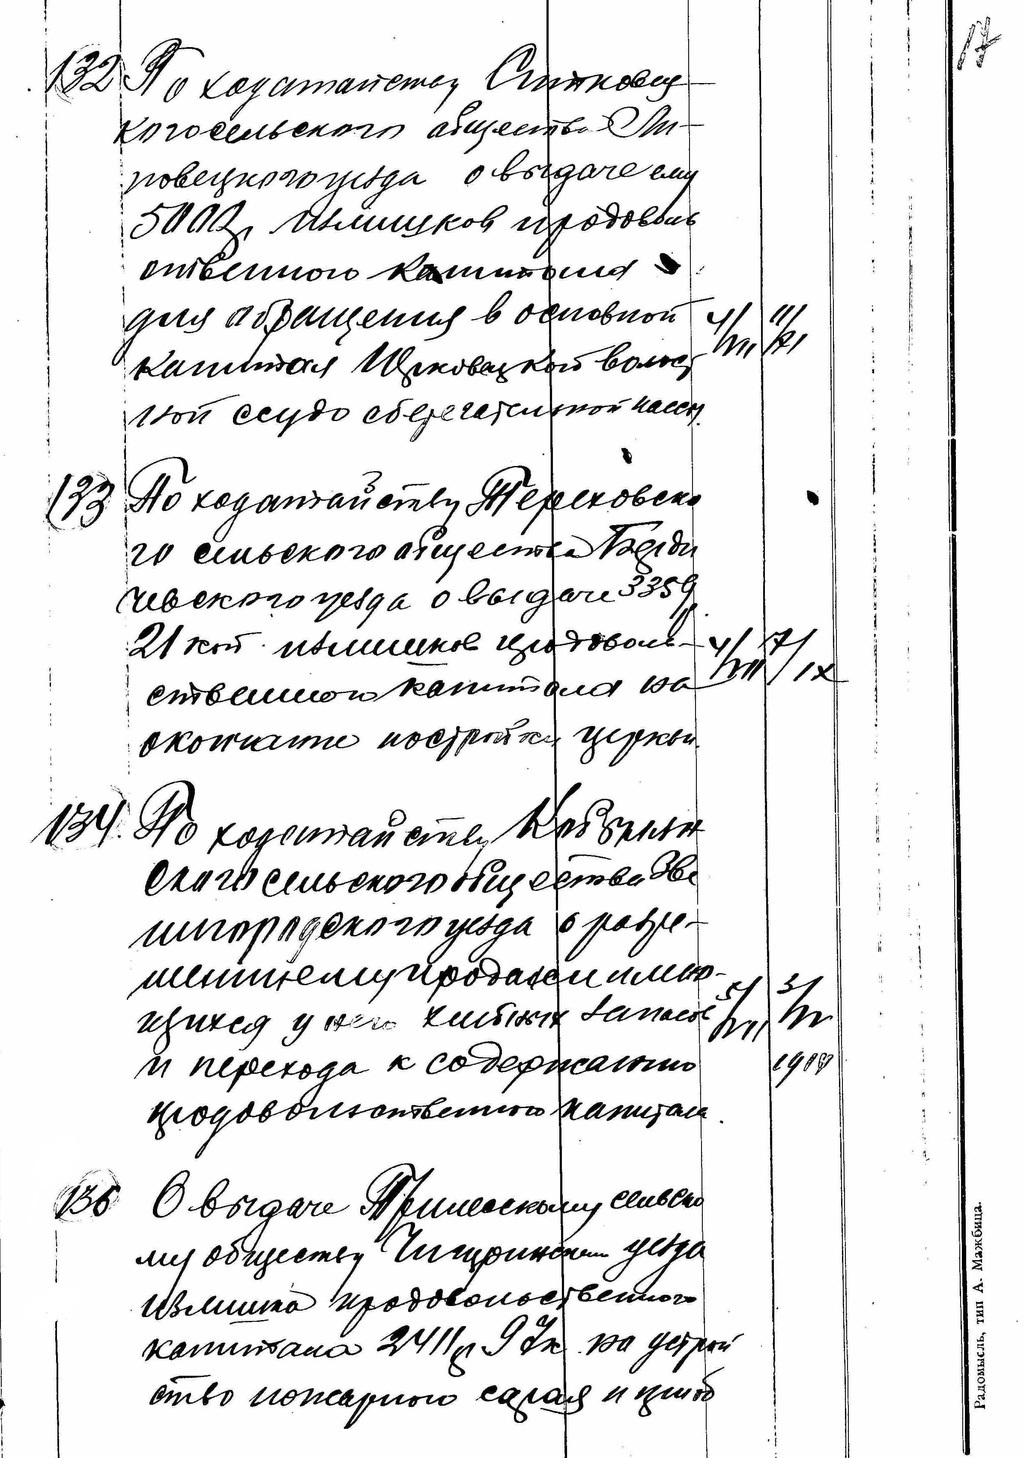 17
132 По ходатайству Ситковец
кого сельского общества Ли-
повецкого уезда о выдаче ему
500 р. излишков продоволь
ственного капитала
для обращения в основной 4/VII 11/XI
капитал волост
ной ссудо сберегательной кассы.
133 По ходатайству Тереховско
го сельского общества Берди
чевского уезда о выдаче 335 р
21 коп. излишков продоволь- 4/VII 17/IX
ственного капитала на
окончание постройки церкви.
134. По ходатайству
ского сельского общества Зве
нигородского уезда о разре-
шении ему продажи имею-
щихся у него хлебных запасов 5/VII 3/IV
и перехода к содержанию 1910
продовольственного капитала.
135 О выдаче Трилесскому сельско
му обществу Чигиринского уезда
излишка продовольственного
капитала 2411 р 97 к. на устрой
ство пожарного сарая и приоб
Радомысль, тип А. Мажбица.